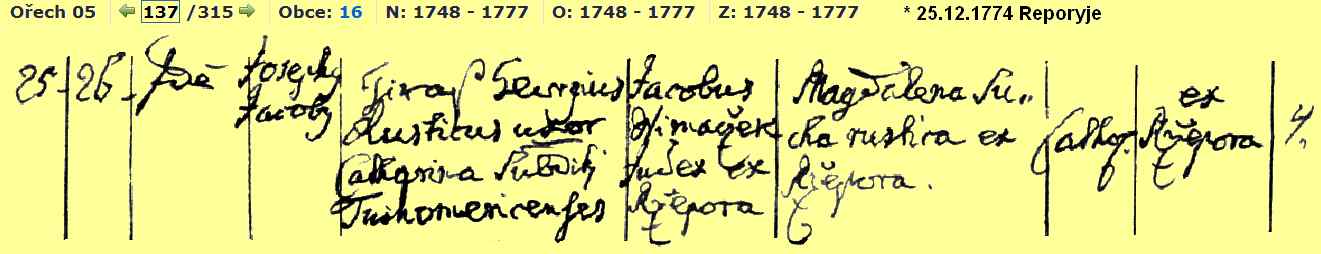 Ořech 05 137 /315 Obce: 16 N: 1748 - 1777 O: 1748 - 1777 Z: 1748 - 1777 * 25.12.1774 Reporyje
25 26
Josephg
Jacobg
Georgius
Rusticus uxor
Catharina Subditi
Tuchomericenses
Jacobus
Judex ex
Rzepora
Magdalena Su..
cha rustica ex
Rzepora.
Cathol.
ex
Rzepora
4.